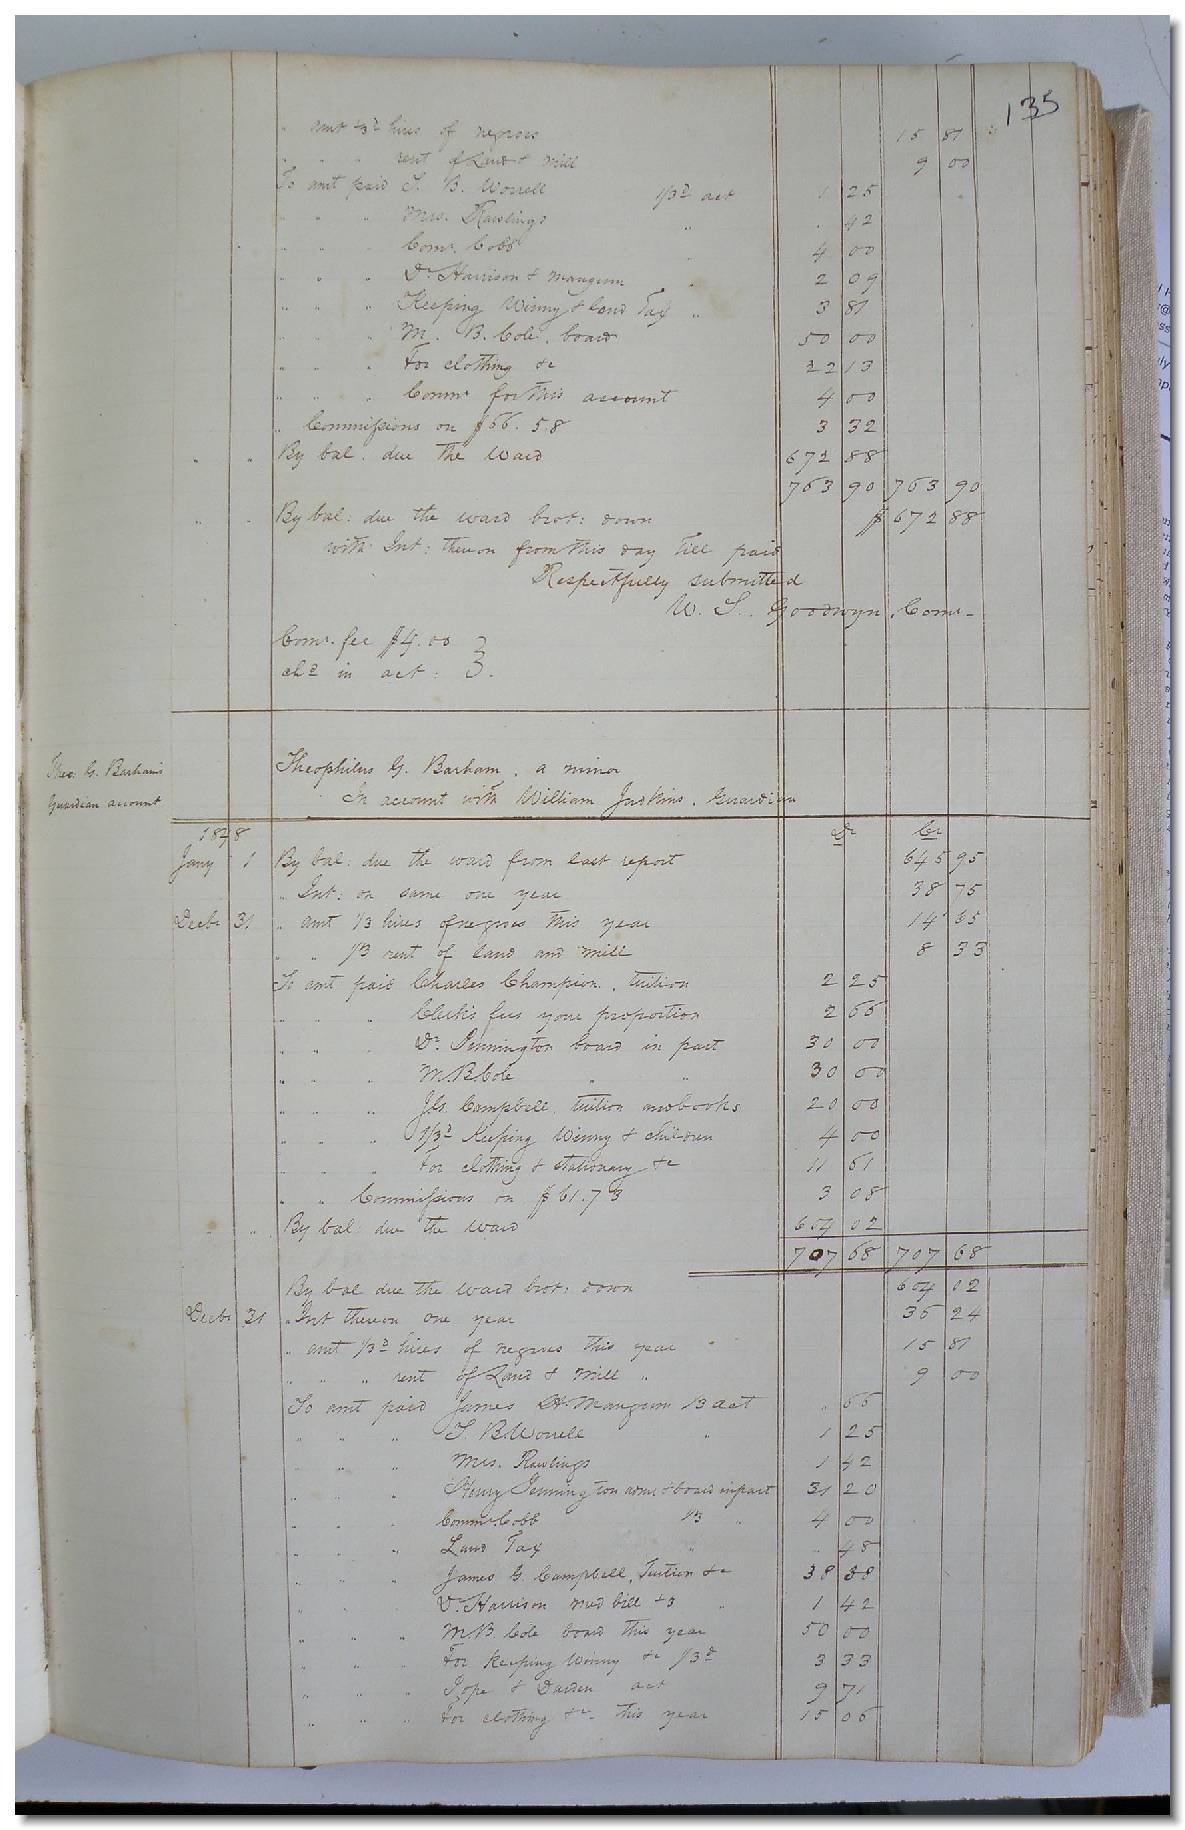 135
" amt 1/3d hires of negroes 15 81
" " " rent of Land & Mill 9 00
To amt paid S. B. Worrell 1/3d act 1 25
" " " Mrs. Rawlings " . 42
" " " Comr. Cobb " 4 00
" " " Dr. Harrison & Mangum " 2 09
" " " Keeping Winny & land Tax " 3 81
" " " M. B. Cole, board 50 00
" " " For clothing &c 22 13
" " " Commr for this account 4 00
" Commissions on $66.58 3 32
" " By bal. due the Ward 672 88
763 90 763 90
" " By bal: due the ward brot: down $ 672 88
with Int: thereon from this day till paid
Respectfully submitted
W. S. Goodwyn, Comr-
Comr. fee $4.00 }
chd in act: }.
Theo: G. Barham's
Guardian account
Theophilus G. Barham, a minor
In account with William Judkins, Guardian
1848 Dr Cr
Jany 1 By bal: due the ward from last report 645 95
" Int: on same one year 38 75
Decbr 31 " amt 1/3 hires of negroes this year 14 65
" " 1/3 rent of land and mill 8 33
To amt paid Charles Champion, tuition 2 25
" " " Clerk's fees your proportion 2 66
" " " Dr. Pennington board in part 30 00
" " " M. B. Cole " " 30 00
" " " Js. Campbell, tuition and books 20 00
" " " 1/3d Keeping Winny & children 4 00
" " " For clothing & stationary &c 11 61
" " Commissions on $61.73 3 08
" " By bal: due the Ward 604 02
707 68 707 68
By bal due the ward brot: down 604 02
Decbr 31 " Int thereon one year 36 24
" amt 1/3d hires of negroes this year 15 81
" " " rent of Land & Mill " 9 00
To amt paid James H. Mangum 1/3 act . 66
" " " S. B. Worrell " 1 25
" " " Mrs. Rawlings 1 42
" " " Henry Pennington & board in part 31 20
" " " Commr Cobb 1/3 " 4 00
" " " Land Tax " . 48
" " " James G. Campbell, Tuition &c 38 38
" " " Dr. Harrison med bill " 1 42
" " " M. B. Cole board this year 50 00
" " " For keeping Winny &c 1/3d 3 33
" " " Pope & Darden act 9 71
" " " For clothing &c. this year 15 06